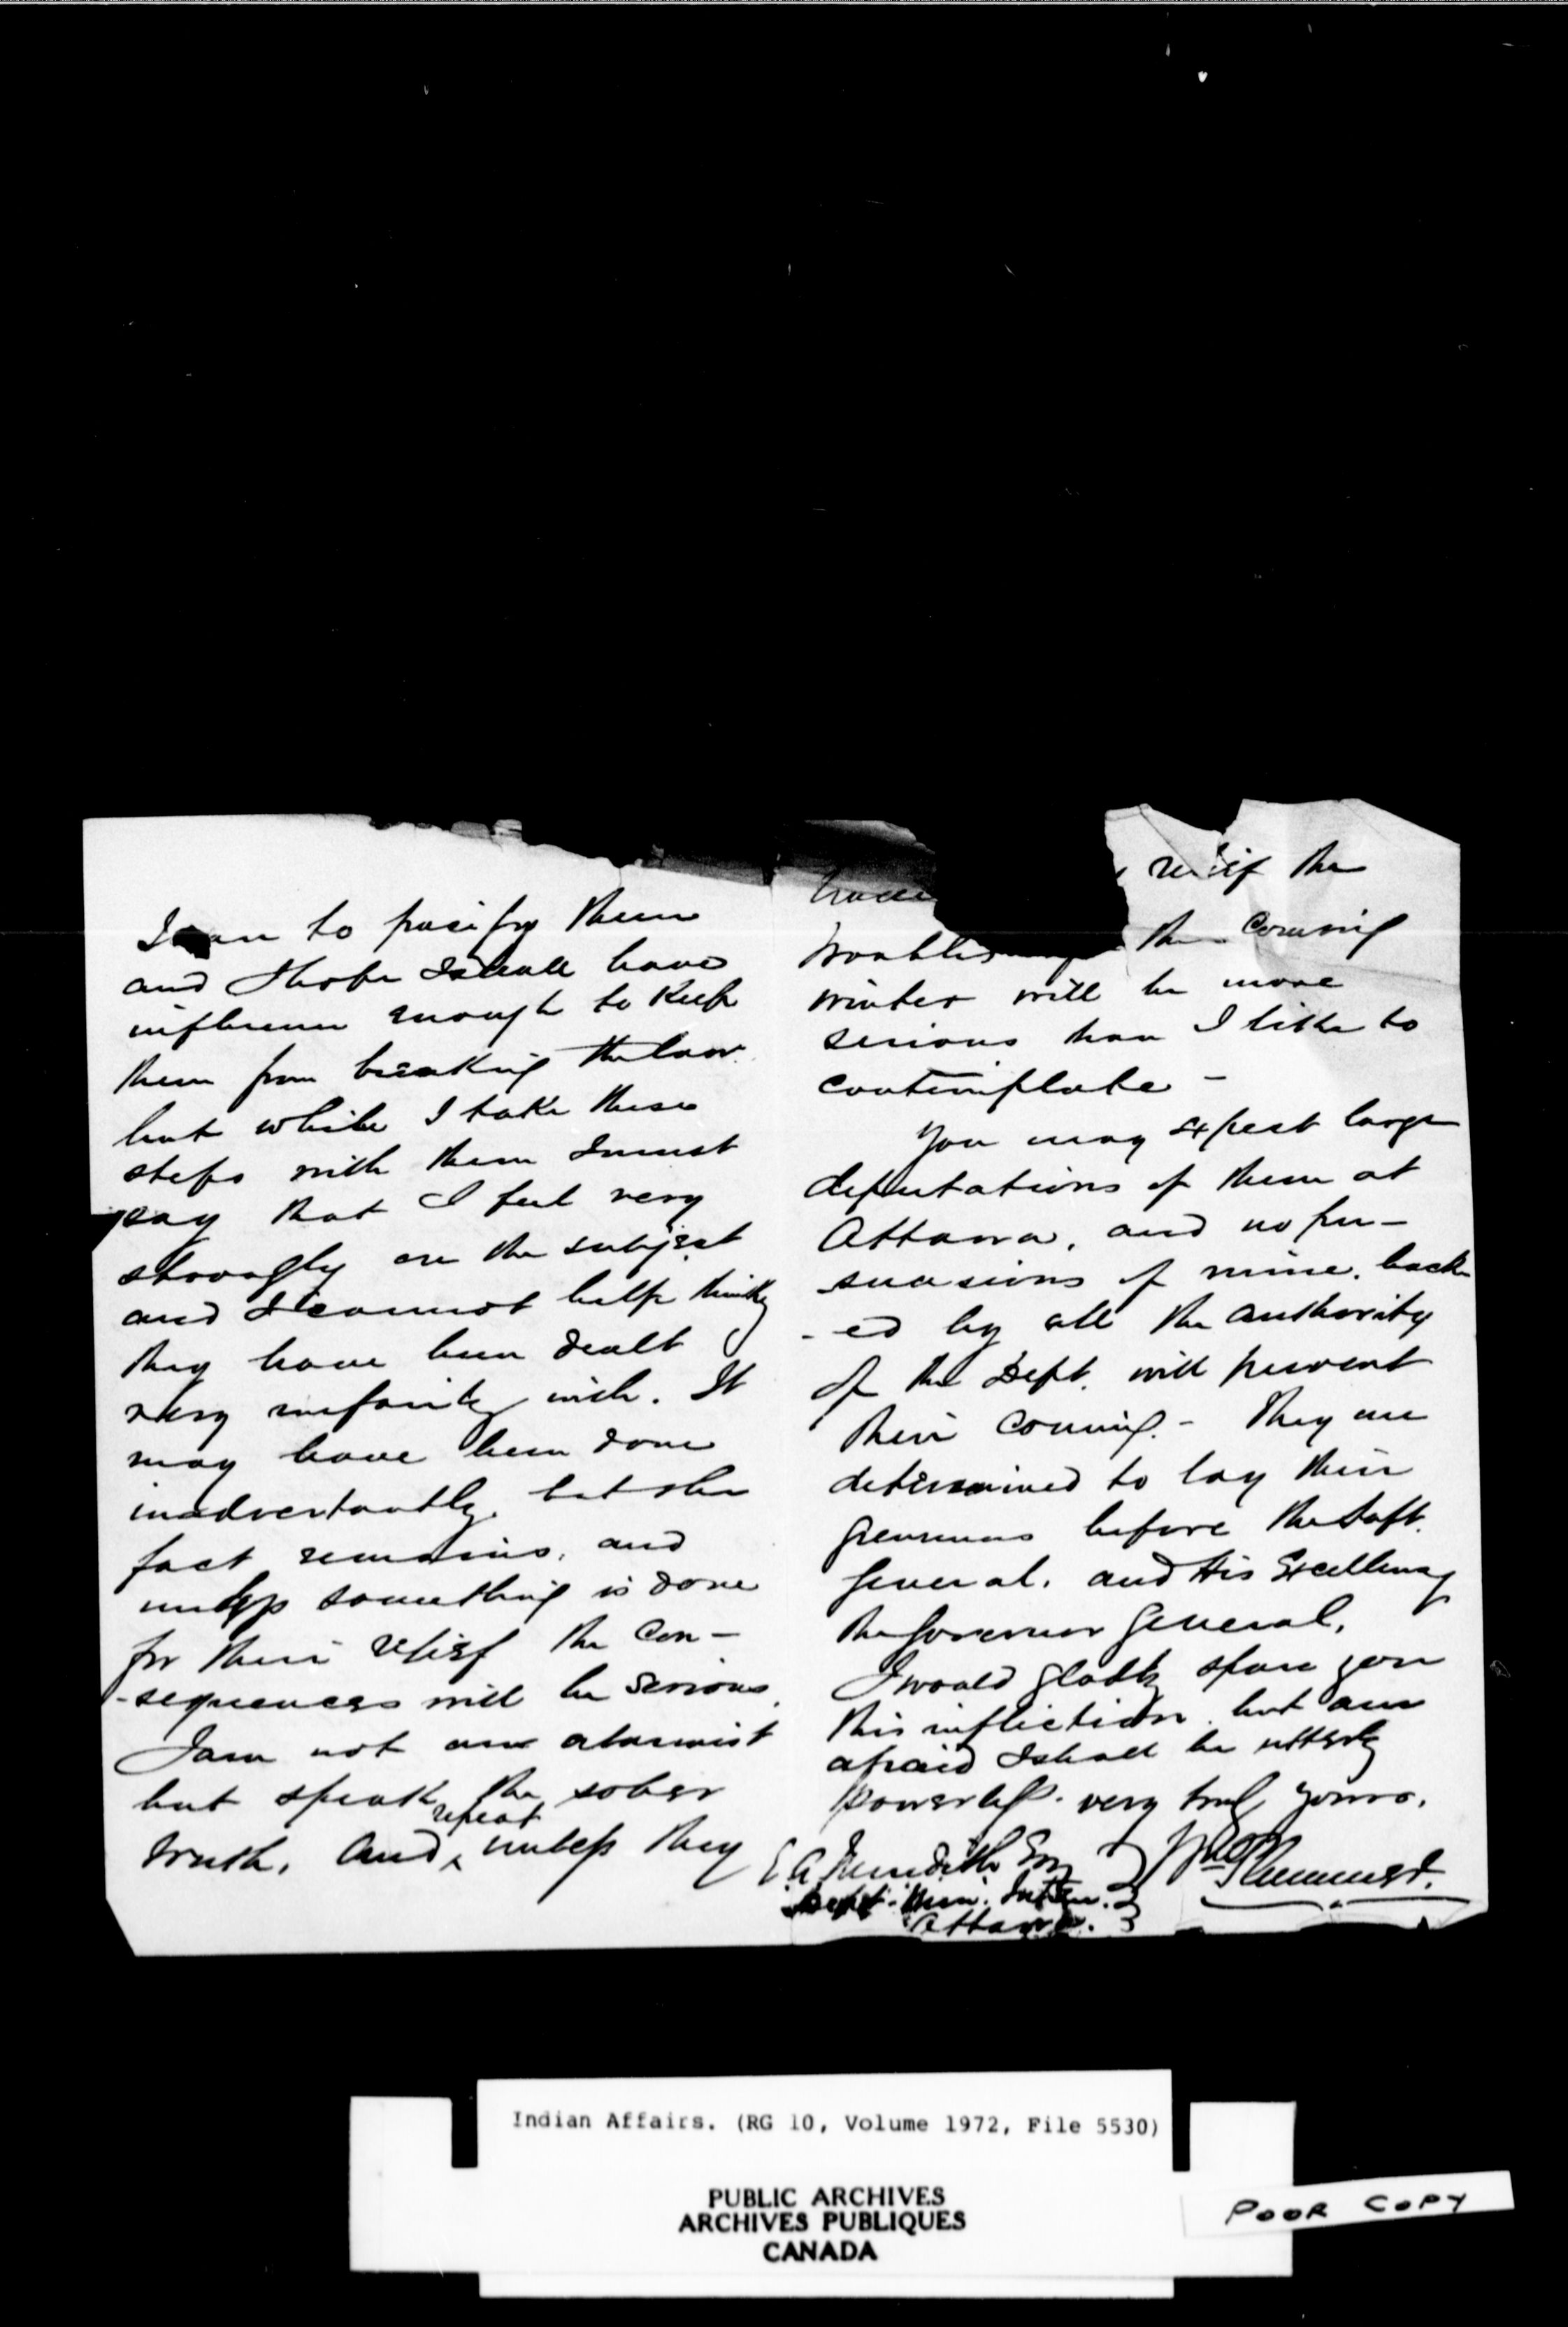 I can to pacify them
and I hope I shall have
influence enough to keep
them from breaking the law.
but while I take these
steps with them I must
say that I feel very
strongly on the subject
and I cannot help thinking
they have been dealt
very unfairly with. It
may have been done
inadvertantly, but the
fact remains, and
unless something is done
for their relief the con-
-sequences will be serious.
I am not an alarmist
but speak the sober
repeat
truth, and unless they
have relief the
troubles the coming
winter will be more
serious than I like to
contemplate -
You may expect large
deputations of them at
Ottawa, and no per-
suasions of mine, back
-ed by all the authority
of the Dept. will prevent
their coming. - They are
determined to lay their
grievances before the Supt.
General, and His Excellency
the Governor General.
I would gladly spare you
this infliction, but am
afraid I shall be utterly
powerless. very truly yours,
E. A. Meredith Esq Wm Plummer
Dept. Min. Inter.
Ottawa.
Indian Affairs. (RG 10, Volume 1972, File 5530)
PUBLIC ARCHIVES
ARCHIVES PUBLIQUES
CANADA
POOR COPY